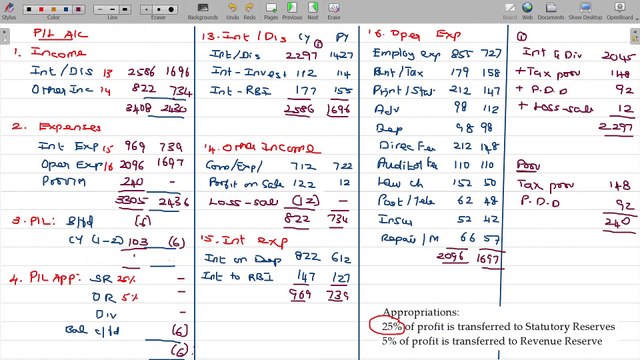 Backgrounds
Undo
Redo
Erase
Board
Web
Document
Show Desktop
Open Sankore
P/L A/C
1. Income
Int/Dis 13 2586 1696
Other Inc 14 822 734
3408 2430
2. Expenses
Int Exp 15 969 739
Oper Exp 16 2096 1697
240 -
3305 2436
3. P/L: B/fd
CY (1-2) 103 (6)
4. P/L App: SR 25% -
OR 5% -
Div -
Bal c/fd (6)
(6)
13. Int/Dis CY PY
Int/Dis 2297 1427
Int-Invest 112 114
Int-RBI 177 155
2586 1696
14. Other Income
Com/Exp/ 712 722
Profit on Sale 122 12
Loss-sale (12) -
822 734
15. Int exp
Int on Dep 822 612
Int to RBI 147 127
969 739
16. Oper Exp
Employ exp 855 727
Rent/Tax 179 158
Print/Stat 212 147
Adv 98 112
Dep 98 98
Direc Fee 212 148
Auditor fee 110 110
Law ch 152 50
Post/Tele 62 48
Insur 52 42
Repair/M 66 57
2096 1697
①
Int & Div 2045
+ Tax prov 148
+ P.D.D 92
+ Loss-sale 12
2297
Prov
Tax prov 148
P.D.D 92
240
Appropriations:
25% of profit is transferred to Statutory Reserves
5% of profit is transferred to Revenue Reserve